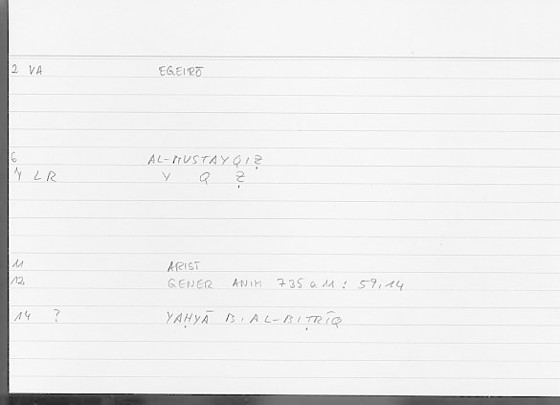 2 VA EGEIRŌ
6 AL-MUSTAYQIẒ
7 LR Y Q Ẓ
11 ARIST
12 GENER ANIM 735 a 11 : 59,14
14 ? YAḤYĀ B. AL-BIṬRĪQ